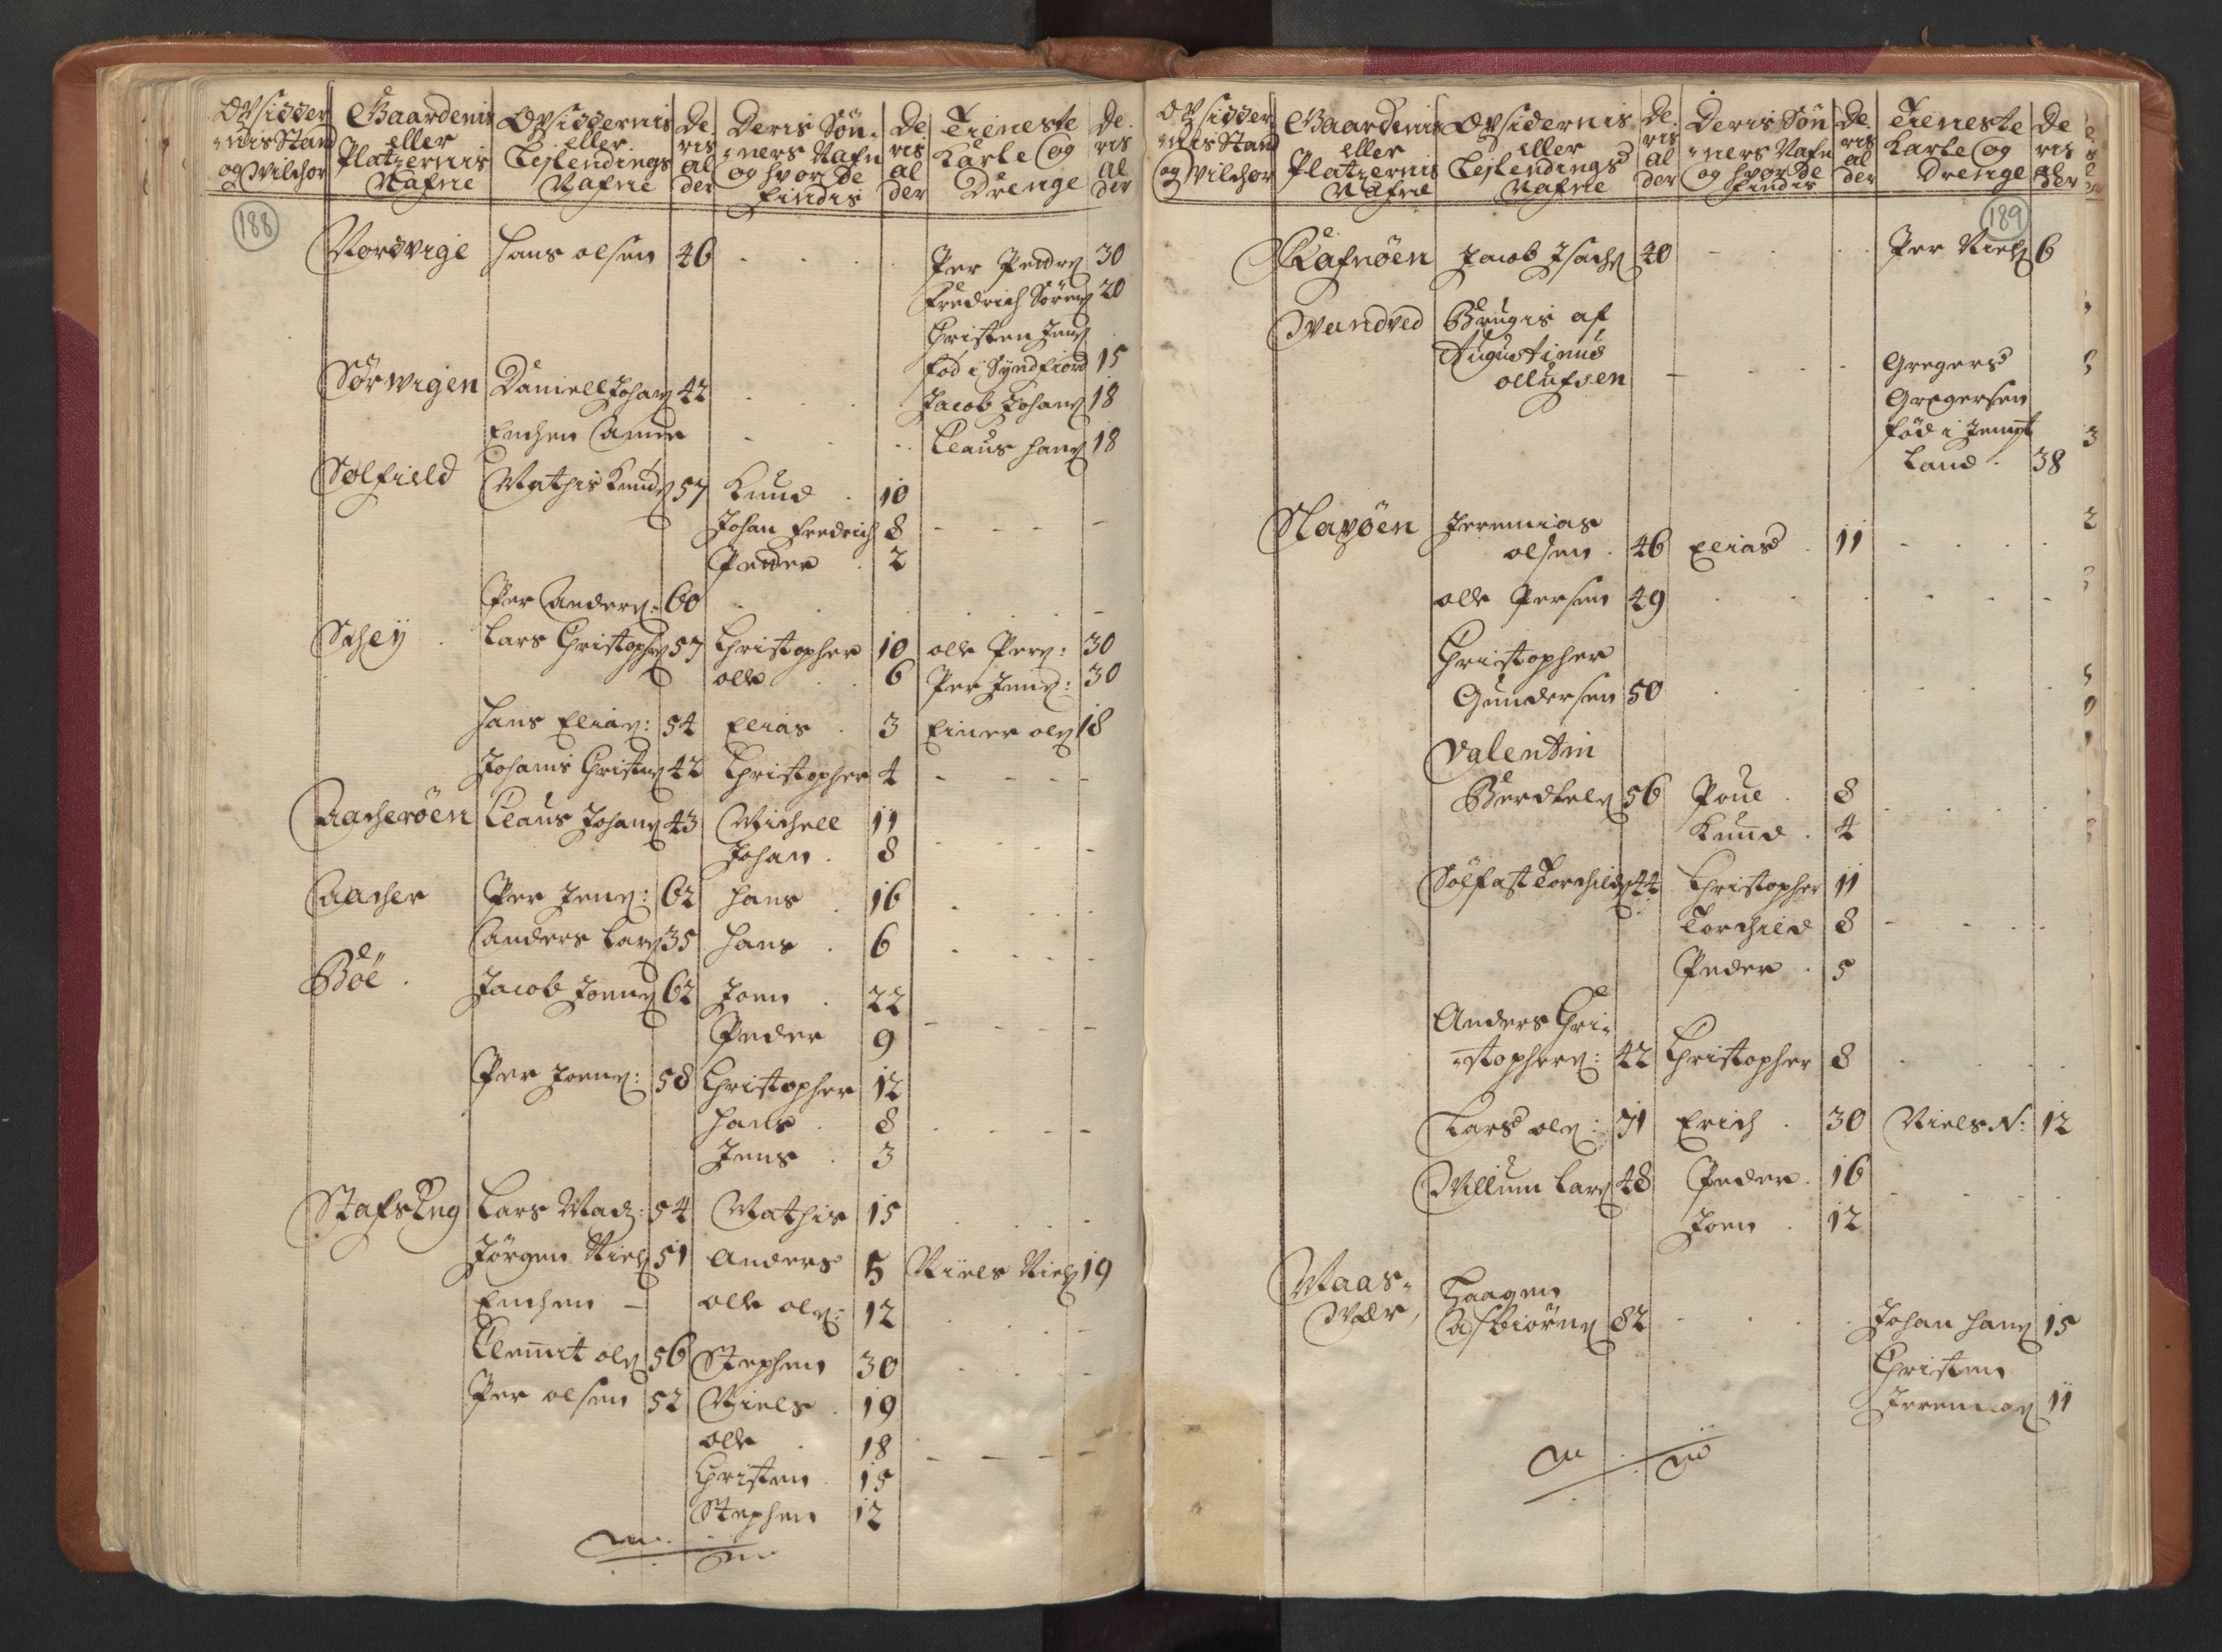 Opsidder
nis Stand
og Vilchor
Gaardenis
eller
Platzernis
Nafne
Opsiddernis
eller
Leilendings
Nafne
De
ris
al
der
Deris Søn-
ners Nafn
og hvor de
findis
De
ris
al
der
Tieneste
Karle og
Drenge
De
ris
al
der
188
Nordvige Hans olsen 46 Per Peders 30
Fredrich Sørens 20
Christen Jens
fød i Syndfiord 15
Sørwigen Daniell Johans 42 Jacob Johans 18
Enchen Claus Hans 18
Solfield Mathis Knuds 57 Knud 10
Johan Fredrich 8
Petter 2
Per Anders: 60
Schey Lars Christophers 57 Christopher 10 olle Pers: 30
olle 6 Per Jens: 30
Hans Elias: 54 Elias 3 Einer ols 18
Johanis Christens 42 Christopher 4
Aacherøen Claus Johans 43 Michell 11
Johan 8
Aacher Per Jens: 62 Hans 16
Anders Lars 35 Hans 6
Bøe Jacob Joens 62 Joen 22
Peder 9
Per Joens: 58 Christopher 12
Hans 8
Jens 3
Stafseng Lars Mads: 54 Mathis 15
Jørgen Niels 51 Anders 5 Niels Niels 19
Enchen olle ols: 12
Clemmit ols 56 Stephen 30
Per olsen 52 Niels 19
olle 18
Christen 15
Stephen 12
Opsidder
nis Stand
og Vilchor
Gaardenis
eller
Platzernis
Nafne
Opsidernis
eller
Leilendings
Nafne
De
ris
al
der
Deris Søn
ners Nafn
og hvor de
findis
De
ris
al
der
Tieneste
Karle og
Drenge
De
ris
al
der
189
Rafnøen Jacob Isachs 40 Per Niels 6
Wandved Brugis af
Augustinus
ollufsen Gregers
Gregersen
fød i Jempt
Land 38
Navøen Jeremias
olsen 46 Elias 11
olle Persen 49
Christopher
Gundersen 50
Valentin
Berdtels 56 Poul 8
Knud 4
Sølfast Torchilds 44 Christopher 11
Torchild 8
Peder 5
Anders Chri-
stophers: 42 Christopher 8
Lars ols: 71 Erich 30 Niels N: 12
Willum Lars 48 Peder 16
Joen 12
Maas-
Wær Haagen
Asbiørns 82 Johan Hans 15
Christen
Jeremias 11